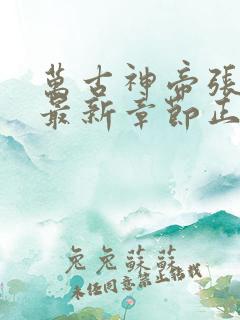 萬古神帝張
最新章節正
兔兔蘇蘇
未經同意禁止轉載